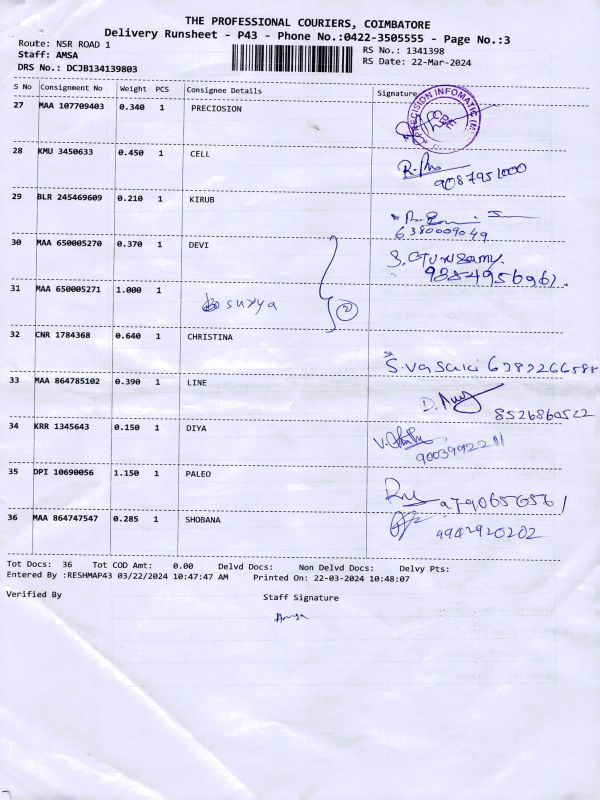 THE PROFESSIONAL COURIERS, COIMBATORE
Delivery Runsheet - P43 - Phone No.:0422-3505555 - Page No.:3
Route: NSR ROAD 1 RS No.: 1341398
Staff: AMSA RS Date: 22-Mar-2024
DRS No.: DCJB134139803
S No Consignment No Weight PCS Consignee Details Signature
27 MAA 107709403 0.340 1 PRECIOSION
PRECISION INFOMATIC (M)
CBE
28 KMU 3450633 0.450 1 CELL
9087951000
29 BLR 245469609 0.210 1 KIRUB
6380009049
30 MAA 650005270 0.370 1 DEVI
31 MAA 650005271 1.000 1
surya 2
32 CNR 1784368 0.640 1 CHRISTINA
S. Vasuki
33 MAA 864785102 0.390 1 LINE
8526860522
34 KRR 1345643 0.150 1 DIYA
35 DPI 10690056 1.150 1 PALEO
36 MAA 864747547 0.285 1 SHOBANA
Tot Docs: 36 Tot COD Amt: 0.00 Delvd Docs: Non Delvd Docs: Delvy Pts:
Entered By :RESHMAP43 03/22/2024 10:47:47 AM Printed On: 22-03-2024 10:48:07
Verified By Staff Signature
Amsa